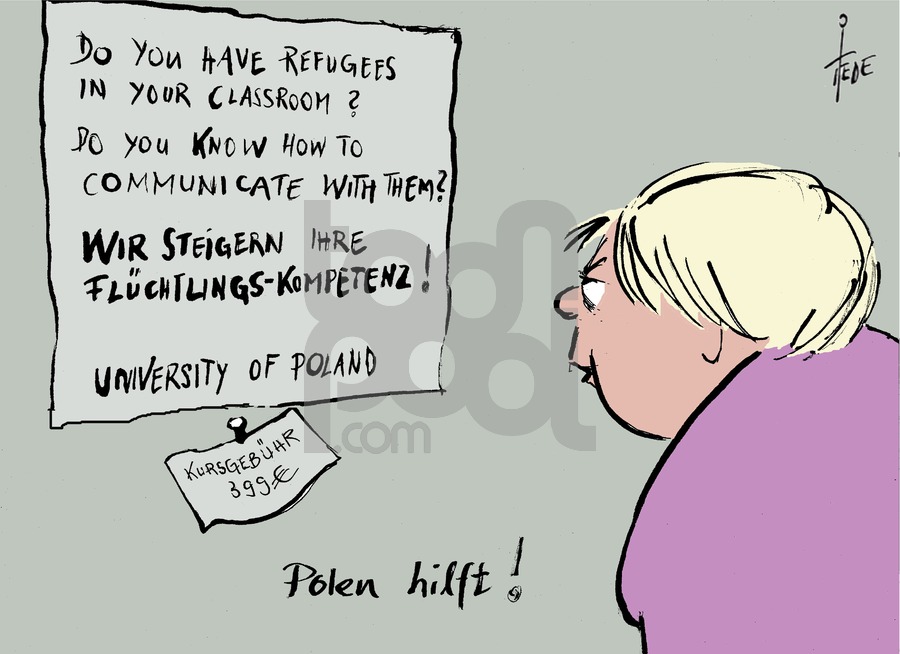 DO YOU HAVE REFUGEES
IN YOUR CLASSROOM ?
DO YOU KNOW HOW TO
COMMUNICATE WITH THEM?
WIR STEIGERN IHRE
FLÜCHTLINGS-KOMPETENZ!
UNIVERSITY OF POLAND
KURSGEBÜHR
399€
Polen hilft!
TEDE
toonpool
.com